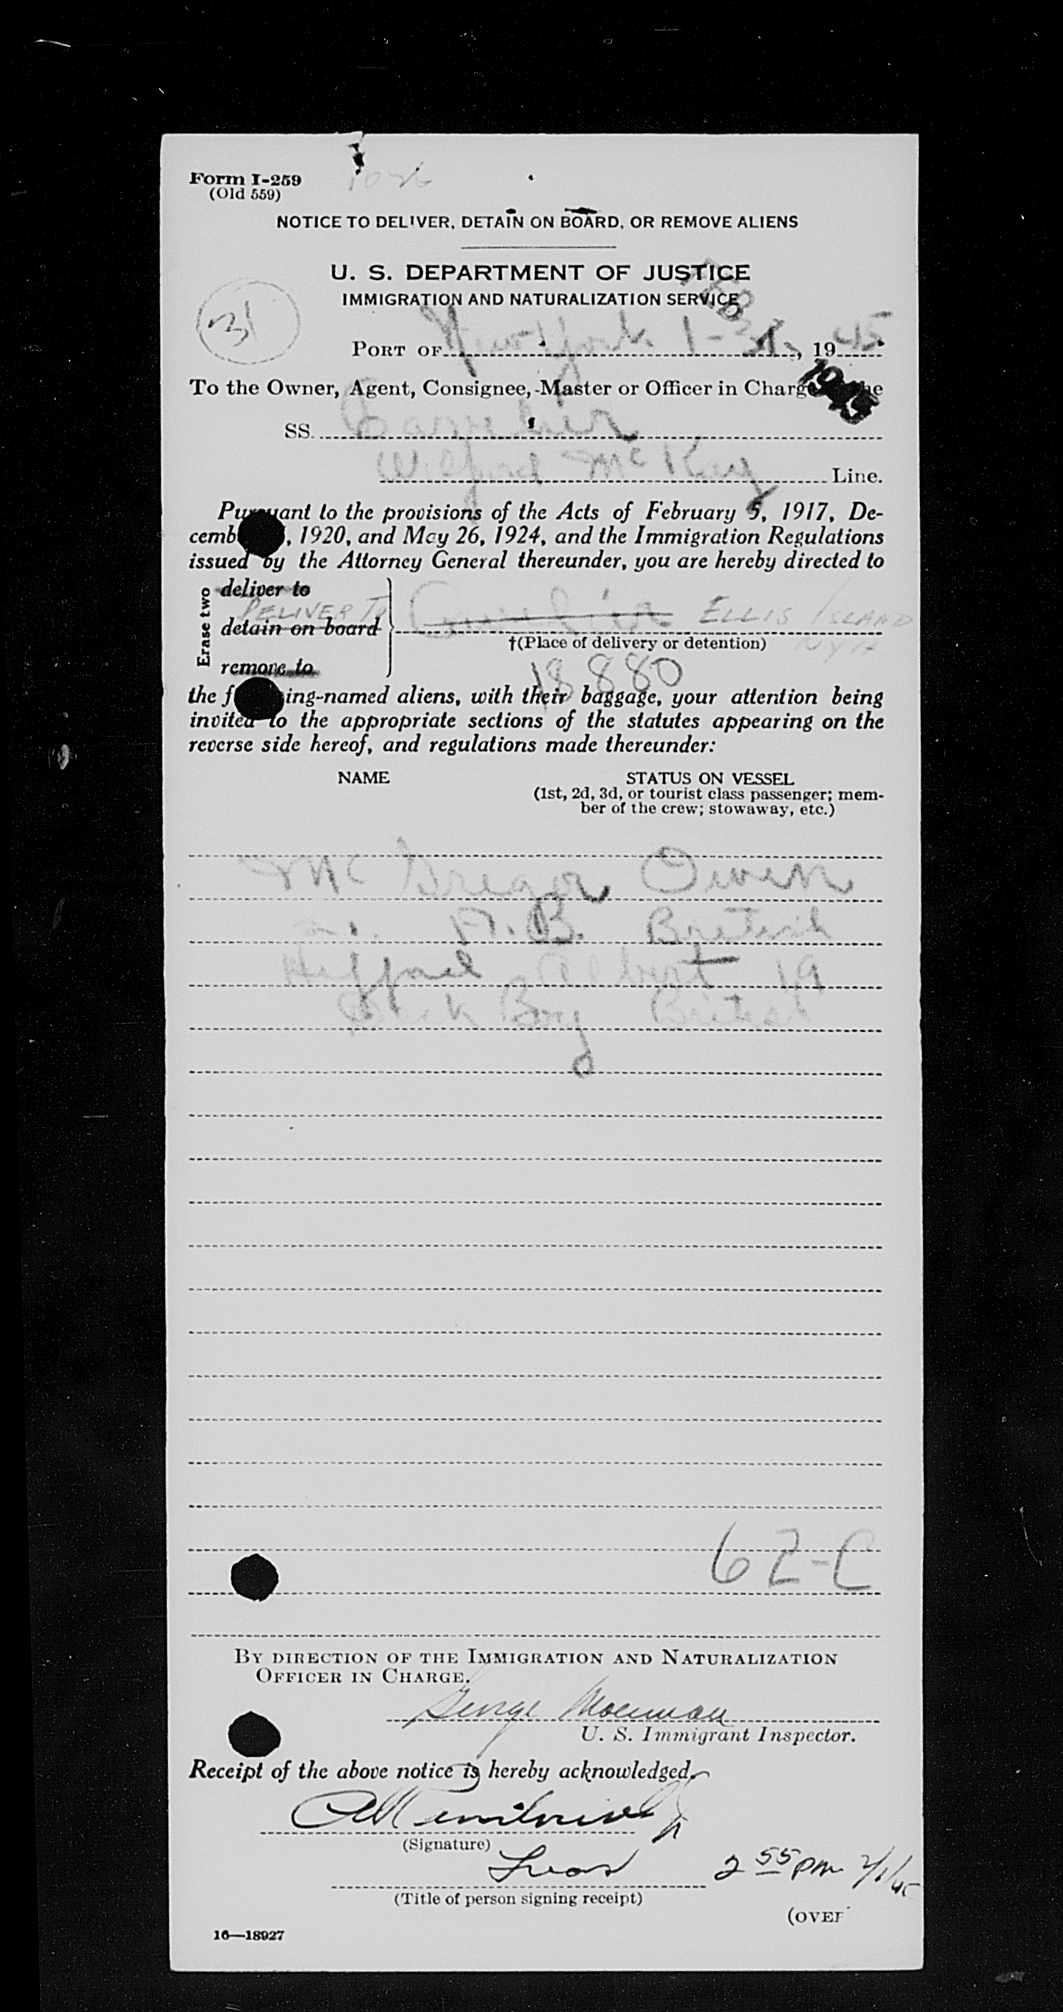 Form I-259
(Old 559)
NOTICE TO DELIVER, DETAIN ON BOARD, OR REMOVE ALIENS
U. S. DEPARTMENT OF JUSTICE
IMMIGRATION AND NATURALIZATION SERVICE
31
FEB 1 1945
PORT OF New York 1-31, 1945
To the Owner, Agent, Consignee, Master or Officer in Charge the
SS.
Wilford McKay Line.
Pursuant to the provisions of the Acts of February 5, 1917, De-
cemb , 1920, and May 26, 1924, and the Immigration Regulations
issued by the Attorney General thereunder, you are hereby directed to
Erase two
deliver to
DELIVER TO
detain on board ELLIS ISLAND
†(Place of delivery or detention) NYH
remove to
18880
the f ing-named aliens, with their baggage, your attention being
invited to the appropriate sections of the statutes appearing on the
reverse side hereof, and regulations made thereunder:
NAME STATUS ON VESSEL
(1st, 2d, 3d, or tourist class passenger; mem-
ber of the crew; stowaway, etc.)
McGregor Owen
A.B. British
Albert 19
Deck Boy British
62-C
BY DIRECTION OF THE IMMIGRATION AND NATURALIZATION
OFFICER IN CHARGE.
George
U. S. Immigrant Inspector.
Receipt of the above notice is hereby acknowledged.
(Signature)
2 55 pm 2/1/45
(Title of person signing receipt)
(OVER
16—18927